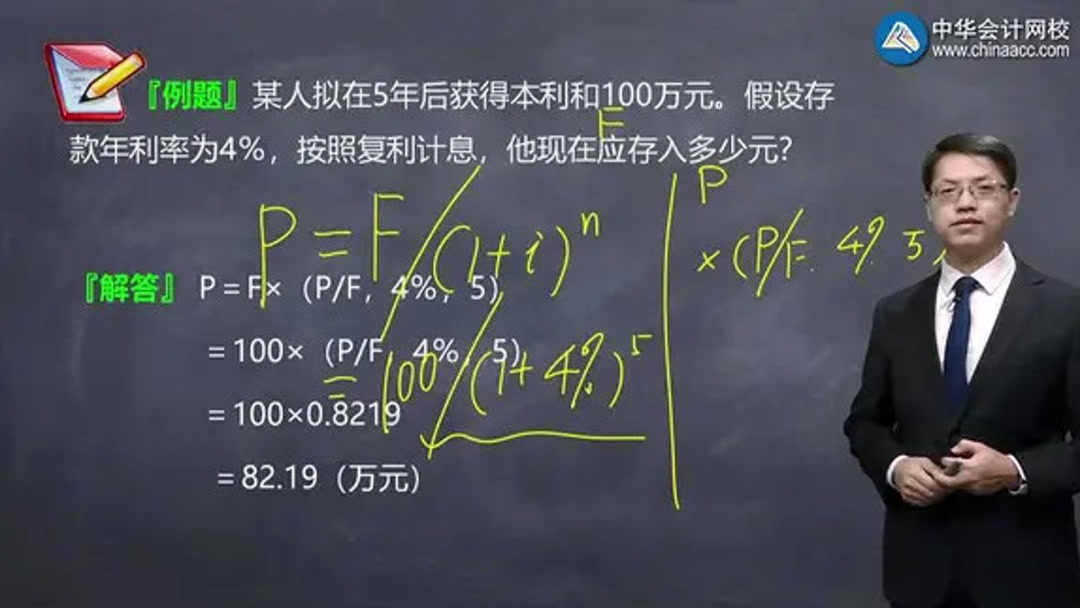 中华会计网校
www.chinaacc.com
『例题』某人拟在5年后获得本利和100万元。假设存
F
款年利率为4%，按照复利计息，他现在应存入多少元？
P
P=F/(1+i)ⁿ
×(P/F. 4% 5)
『解答』P=F×（P/F，4%，5）
=100×（P/F，4%，5）
=100/(1+4%)⁵
=100×0.8219
=82.19（万元）